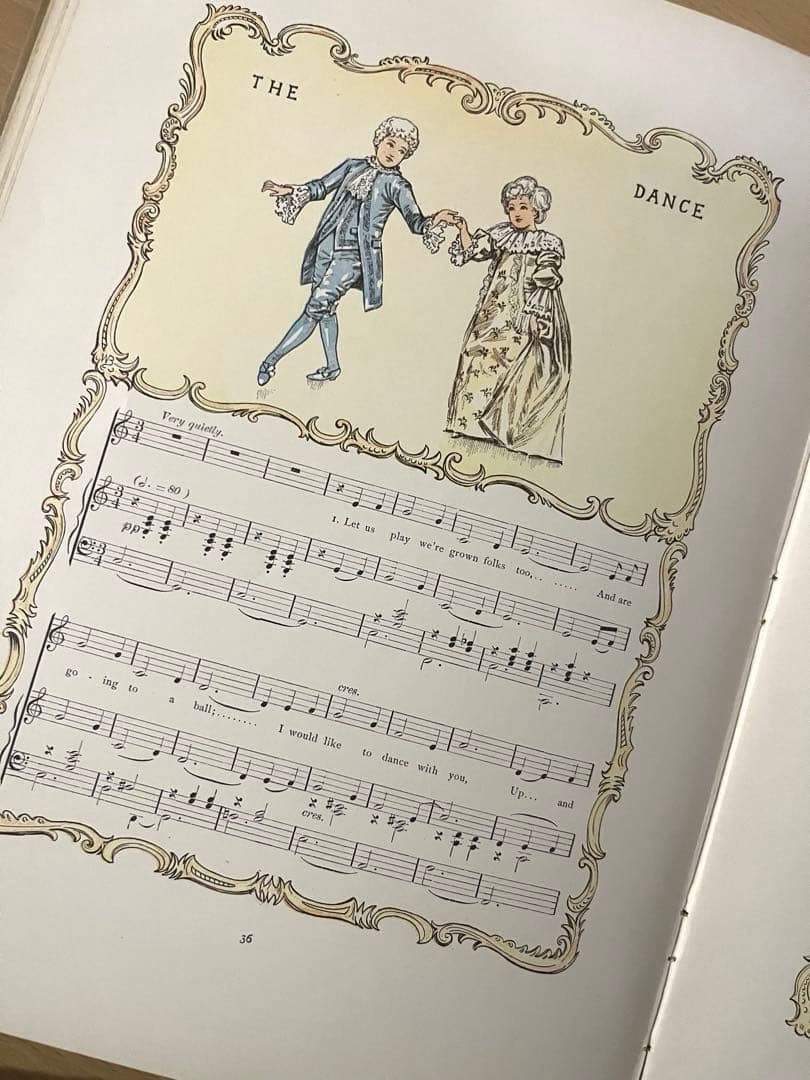 THE
DANCE
Very quietly.
(𝅗𝅥. = 80 )
pp
1. Let us play we're grown folks too,.. ..... And are
cres.
go - ing to a ball;........ I would like to dance with you, Up... and
cres.
36